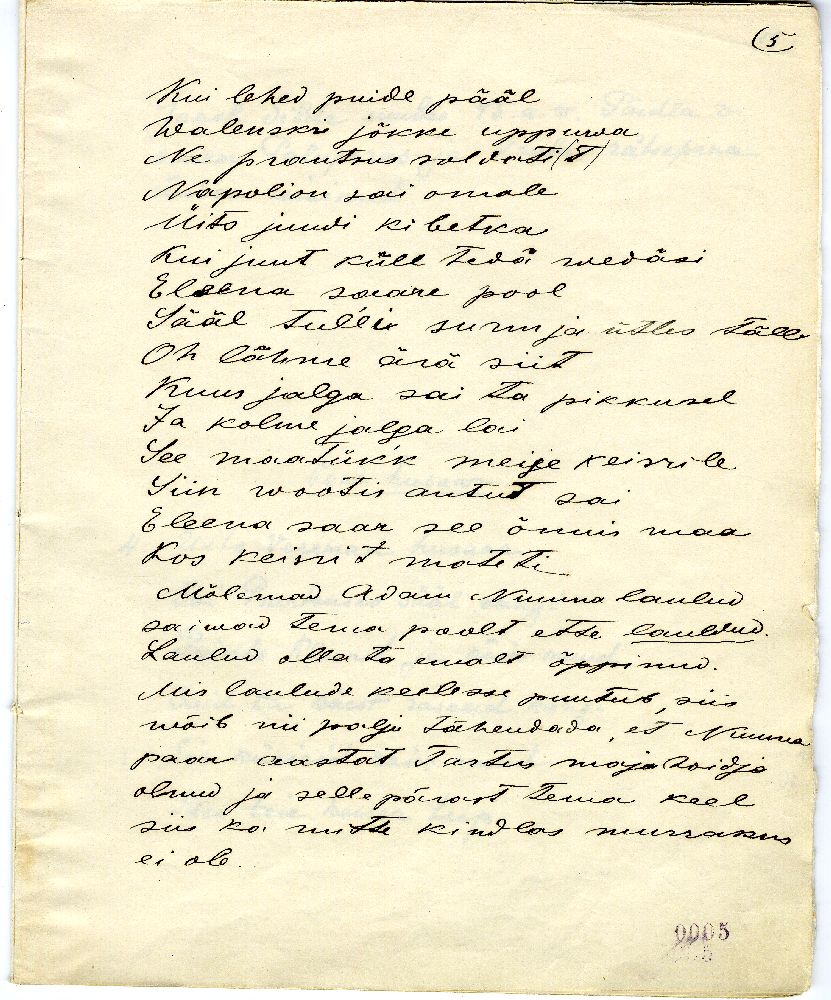 (5
Kui lehed puide pääl
Walenski jõkke uppuwa
Ne prantsus soldati(t)
Napolion sai omale
Üits juudi kibetka
Kui juut küll tedä wedäsi
Eleena saare pool
Sääl tulli surm ja ütles tälle
Oh lähme ärä siit
Kuus jalga sai ta pikkusel
Ja kolme jalga lai
See maatükk meije keisrile
Siin wootis antut sai
Eleena saar see õnnis maa
Kos keisrit mateti
Mõlemad Adam Numma laulud
saiwad tema poolt ette lauldud.
Laulud olla ta emalt õppinud.
Mis laulude keelesse puutub, siis
wõib nii palju tähendada, et Numma
paar aastat Tartus majahoidja
olnud ja sellepärast tema keel
siis ka mitte kindlas murrakus
ei ole.
0005